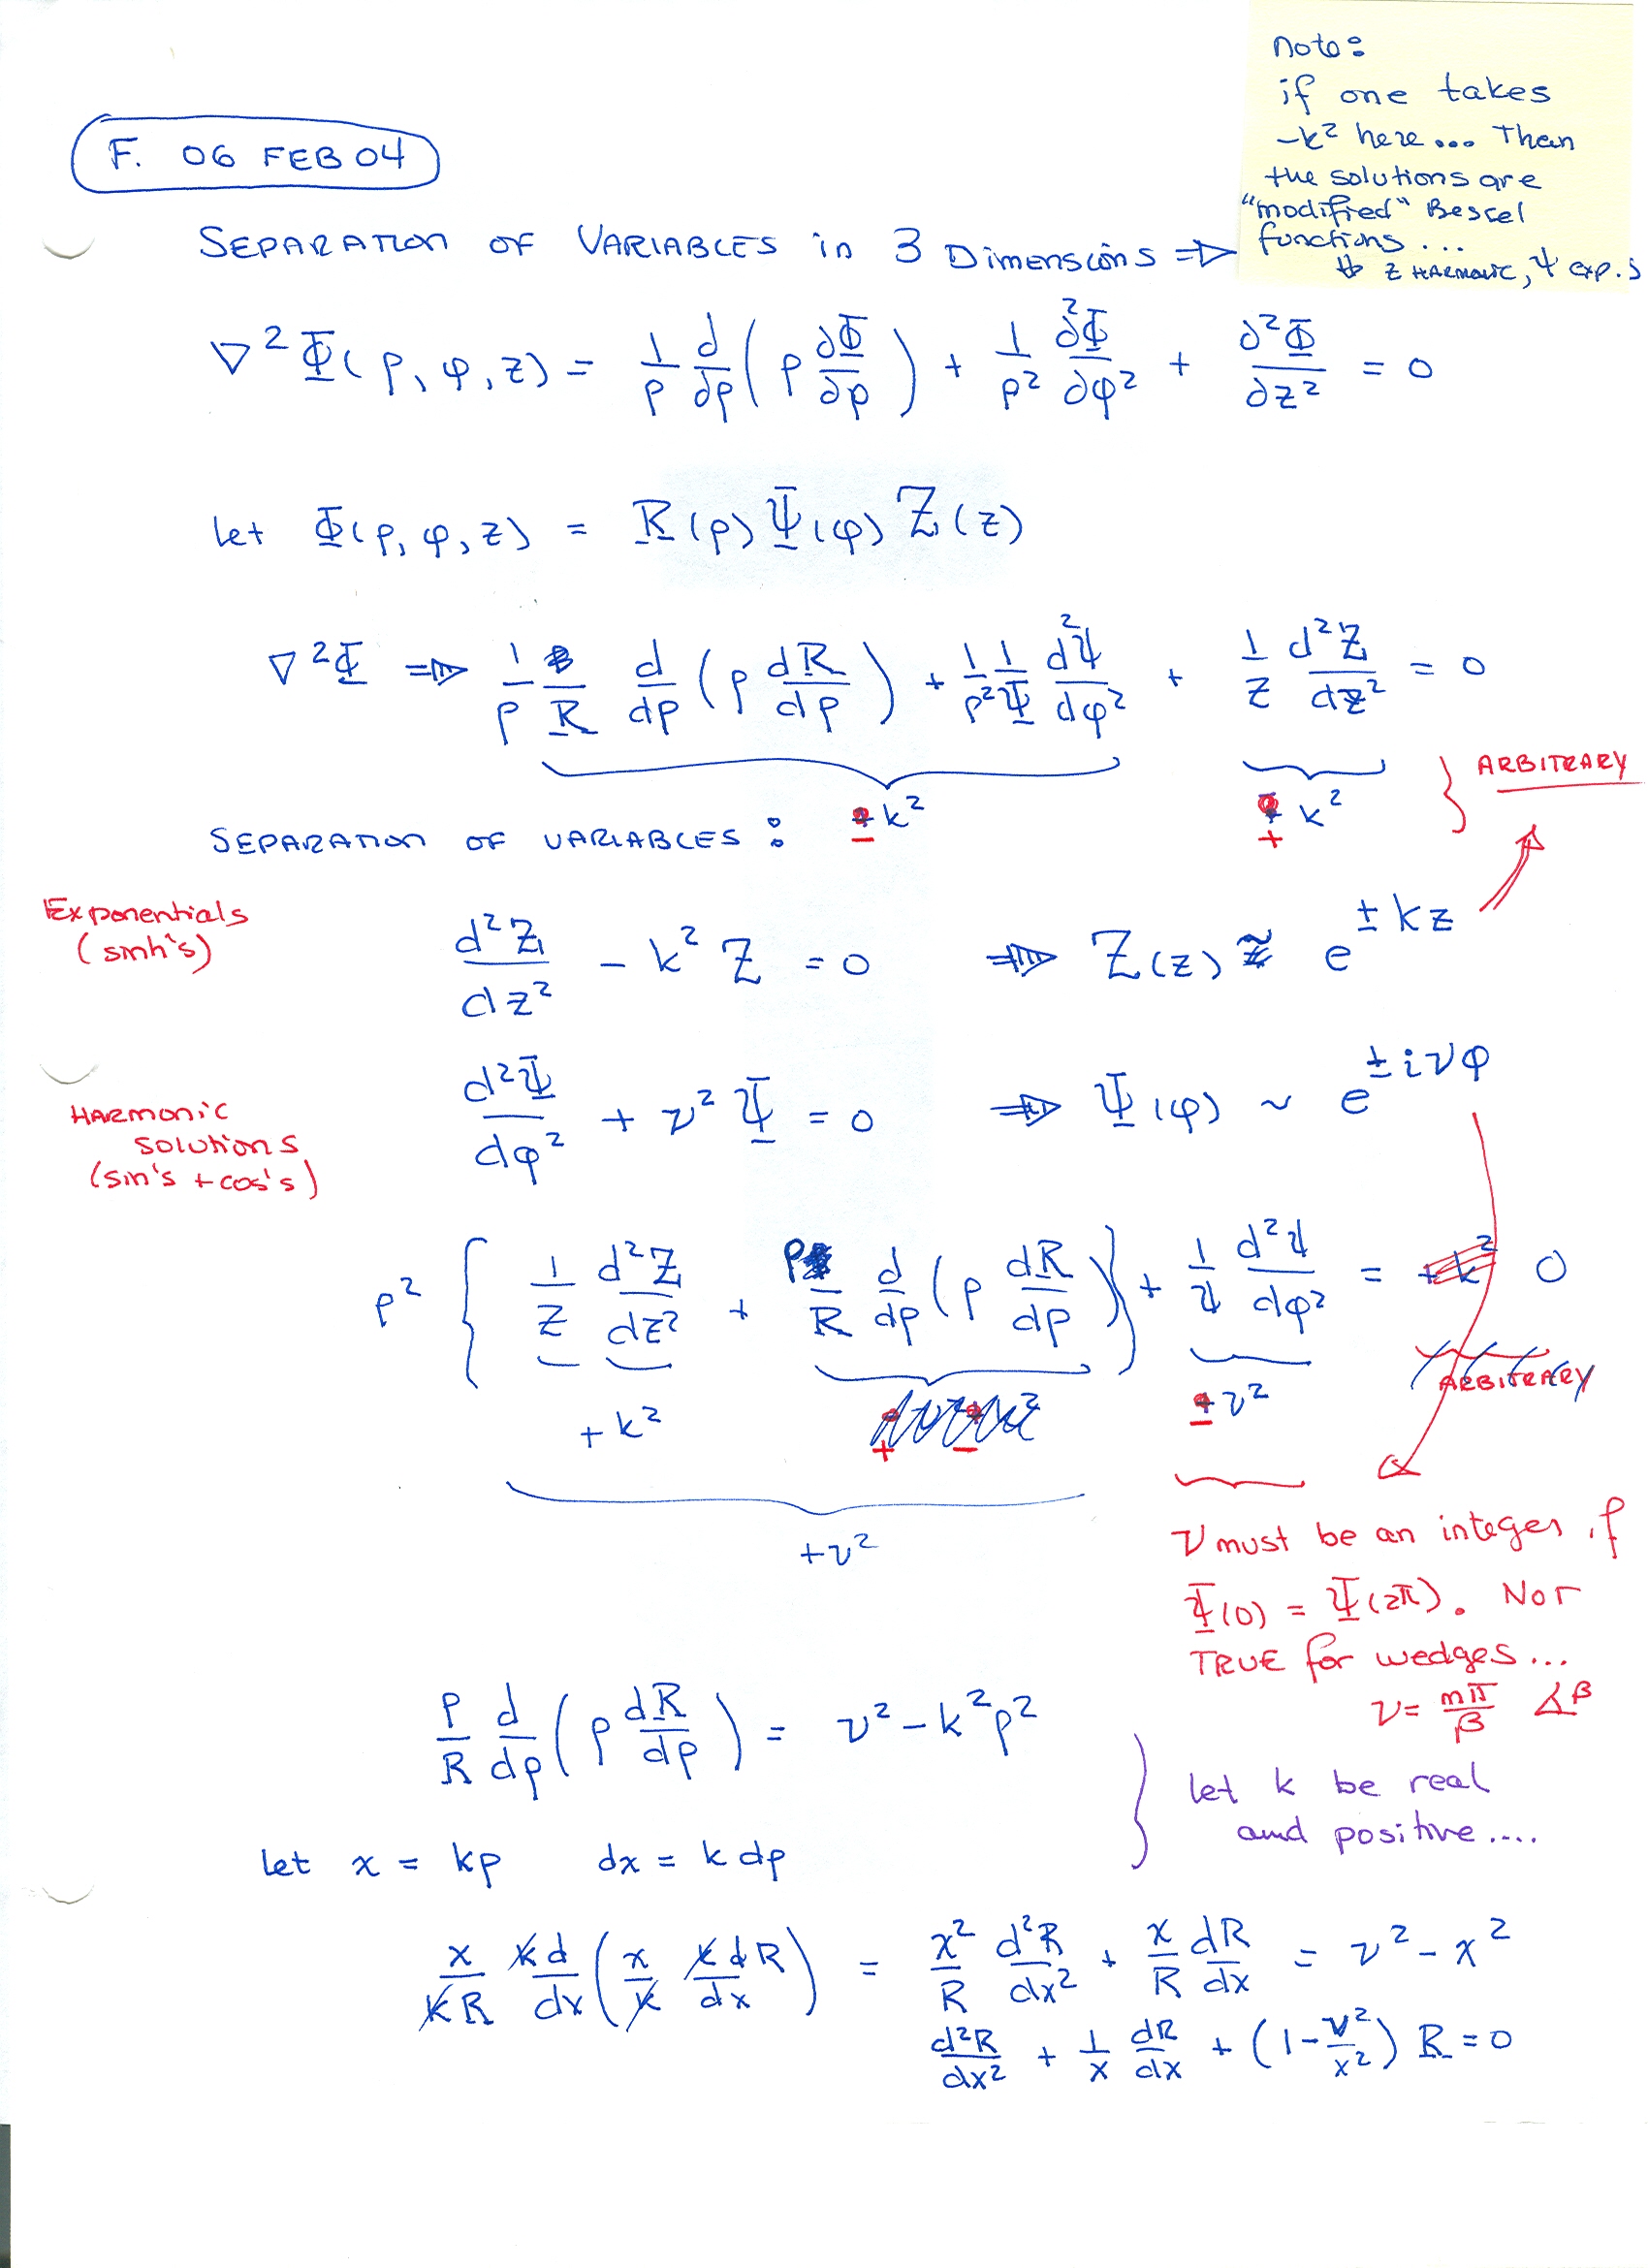 note:
if one takes
-k² here... Then
the solutions are
"modified" Bessel
functions...
z HARMONIC, ψ exp.s
F. 06 FEB 04
SEPARATION OF VARIABLES in 3 Dimensions ⇒
∇²Φ(ρ, φ, z) = 1/ρ ∂/∂ρ (ρ ∂Φ/∂ρ) + 1/ρ² ∂²Φ/∂φ² + ∂²Φ/∂z² = 0
let Φ(ρ, φ, z) = R(ρ) Ψ(φ) Z(z)
∇²Φ ⇒ 1/ρ 1/R d/dρ (ρ dR/dρ) + 1/ρ² 1/Ψ d²Ψ/dφ² + 1/Z d²Z/dz² = 0
ARBITRARY
SEPARATION OF VARIABLES: -k² + k²
Exponentials
(sinh's)
d²Z/dz² - k² Z = 0 ⇒ Z(z) ≈ e^{±kz}
HARMONIC
SOLUTIONS
(sin's + cos's)
d²Ψ/dφ² + ν² Ψ = 0 ⇒ Ψ(φ) ~ e^{±iνφ}
ρ² { 1/Z d²Z/dz² + 1/ρR d/dρ (ρ dR/dρ) } + 1/Ψ d²Ψ/dφ² = 0
ARBITRARY
+k² + - -ν²
+ν²
ν must be an integer if
Ψ(0) = Ψ(2π). NOT
TRUE for wedges...
ν = mπ/β ∠β
ρ/R d/dρ (ρ dR/dρ) = ν² - k²ρ²
let k be real
and positive....
let x = kρ dx = k dρ
x/kR kd/dx (x/k kdR/dx) = x²/R d²R/dx² + x/R dR/dx = ν² - x²
d²R/dx² + 1/x dR/dx + (1 - ν²/x²) R = 0